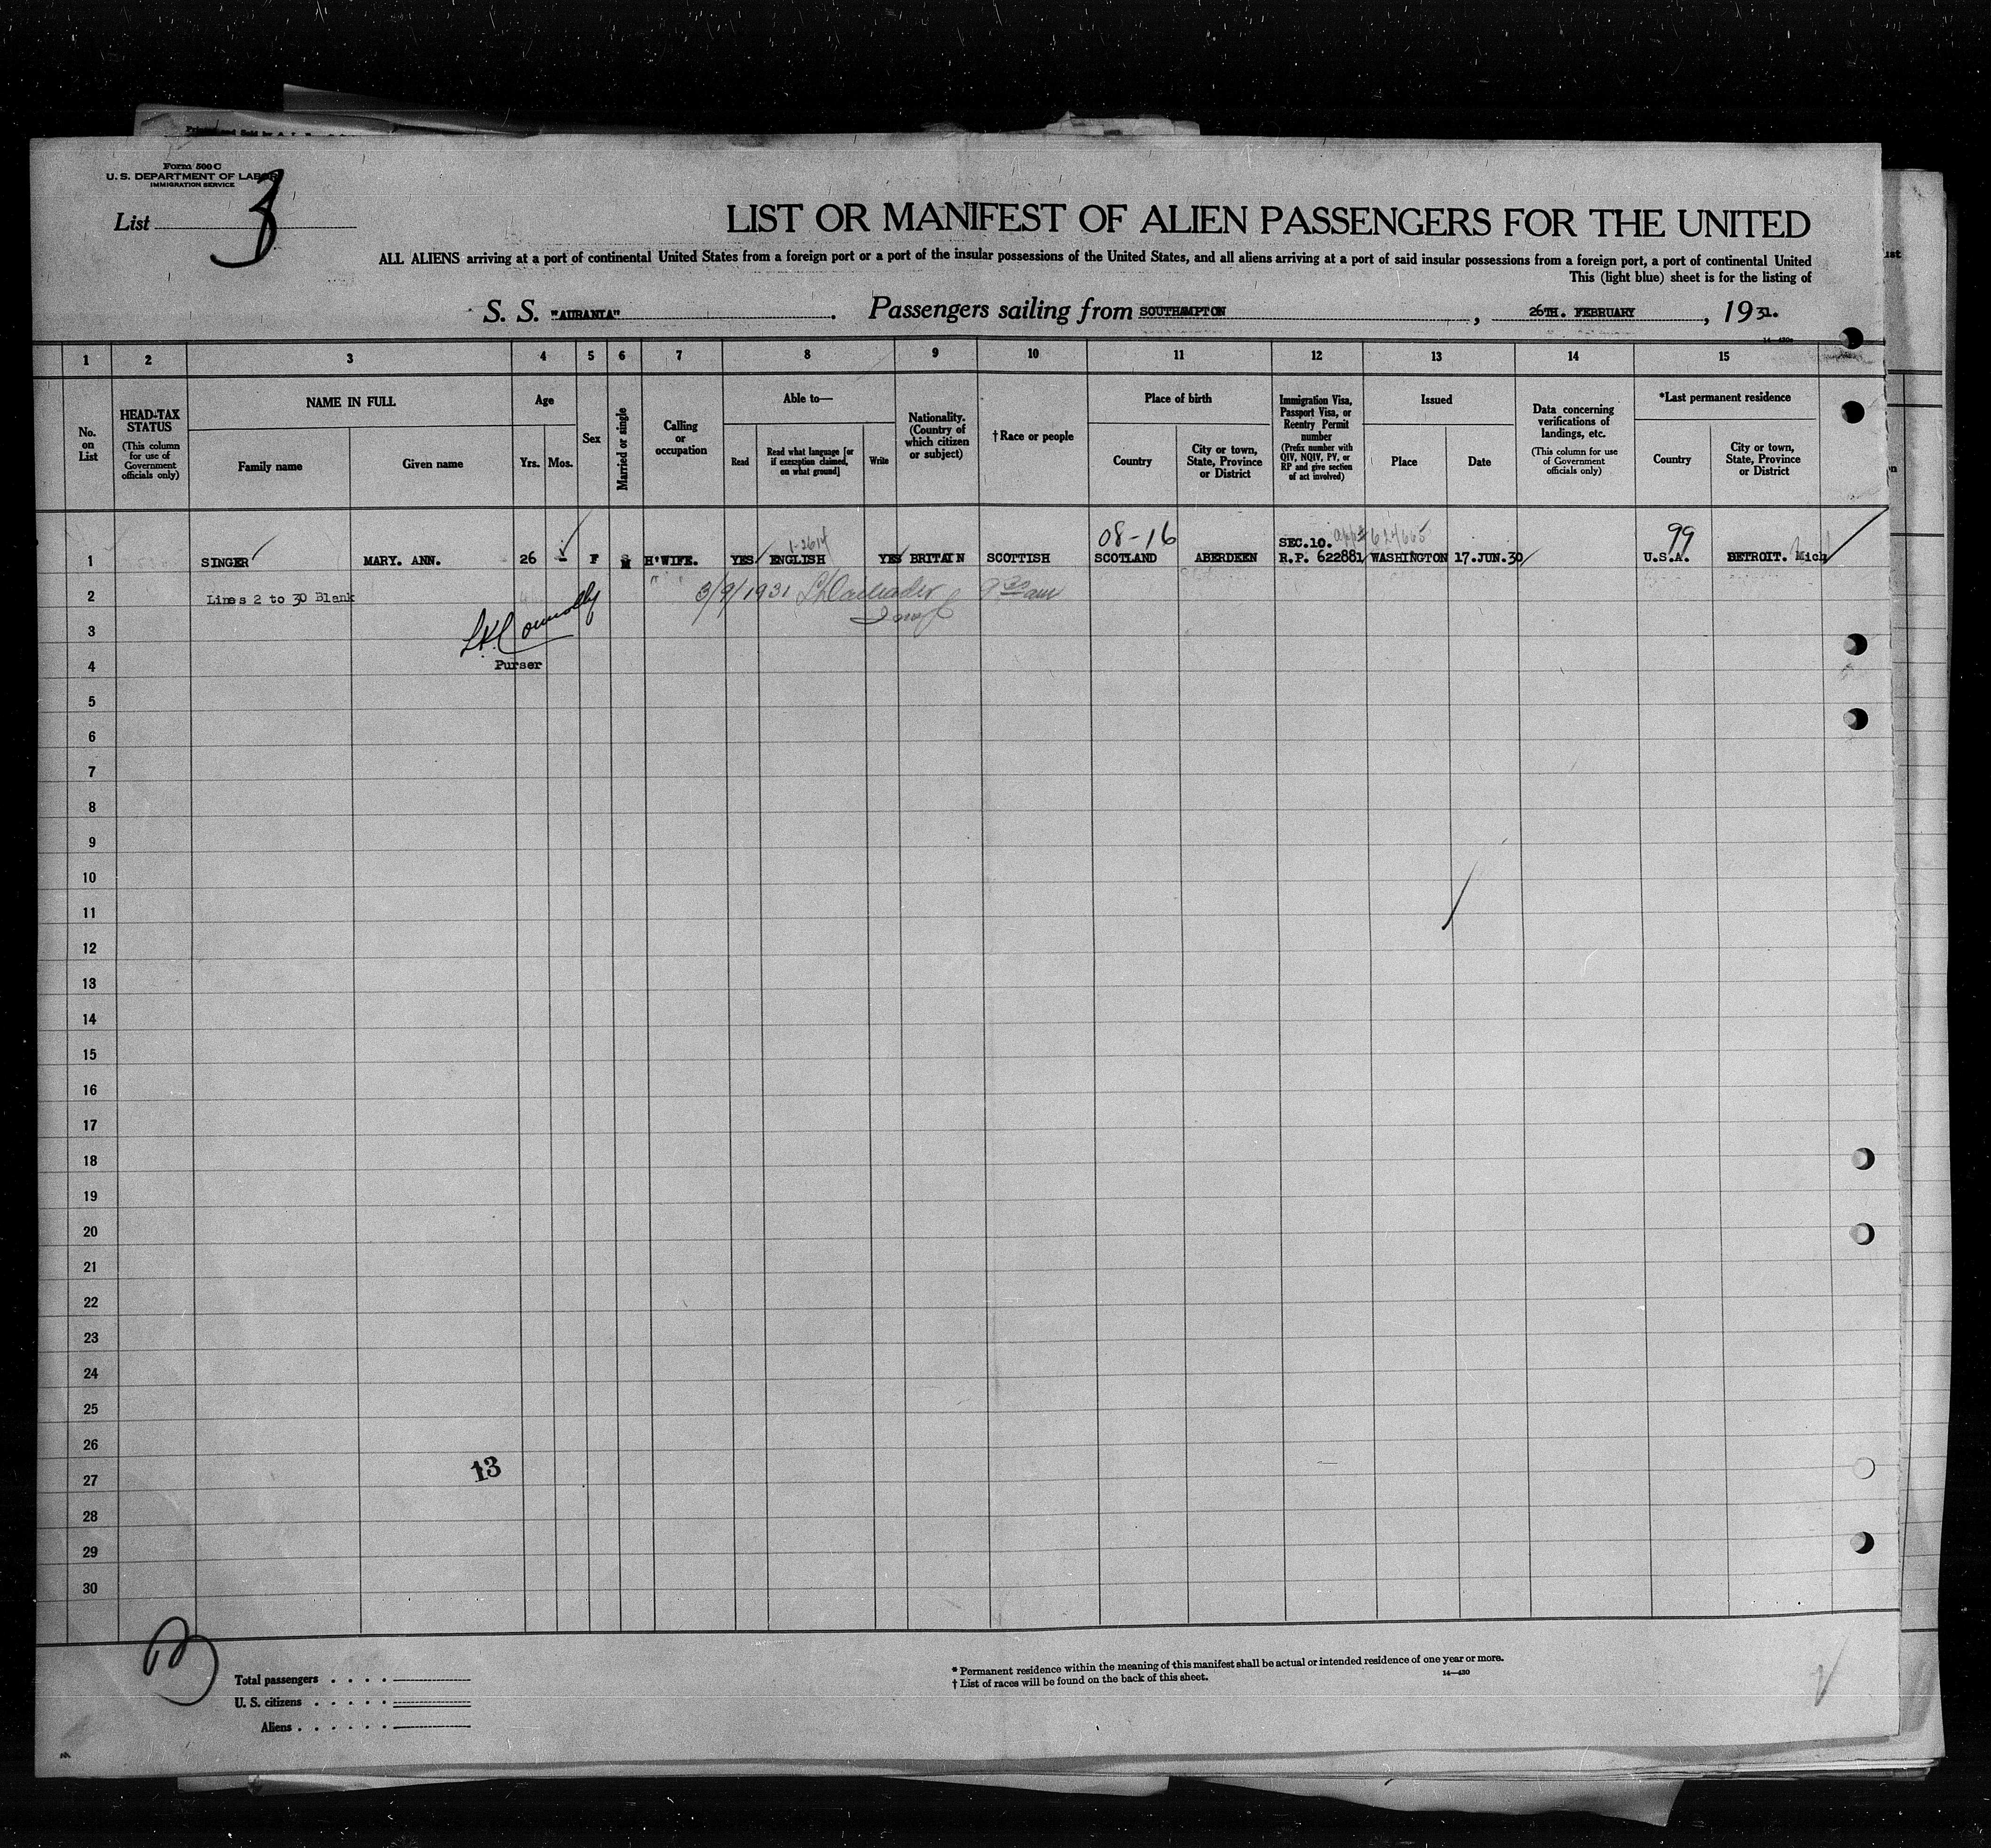 Form 500 C
U. S. DEPARTMENT OF LABOR
IMMIGRATION SERVICE
List 3
LIST OR MANIFEST OF ALIEN PASSENGERS FOR THE UNITED
ALL ALIENS arriving at a port of continental United States from a foreign port or a port of the insular possessions of the United States, and all aliens arriving at a port of said insular possessions from a foreign port, a port of continental United
This (light blue) sheet is for the listing of
S. S. "AURANIA" . Passengers sailing from SOUTHAMPTON , 26TH. FEBRUARY , 19 31.
1 2 3 4 5 6 7 8 9 10 11 12 13 14 15
No. on List
HEAD-TAX STATUS (This column for use of Government officials only)
NAME IN FULL
Family name Given name
Age
Yrs. Mos.
Sex
Married or single
Calling or occupation
Able to—
Read
Read what language [or if exemption claimed, on what ground]
Write
Nationality. (Country of which citizen or subject)
†Race or people
Place of birth
Country
City or town, State, Province or District
Immigration Visa, Passport Visa, or Reentry Permit number (Prefix number with QIV, NQIV, PV, or RP and give section of act involved)
Issued
Place Date
Data concerning verifications of landings, etc. (This column for use of Government officials only)
*Last permanent residence
Country
City or town, State, Province or District
08-16 SEC.10. 624665 99
1 SINGER MARY. ANN. 26 - F M H'WIFE. YES ENGLISH YES BRITAIN SCOTTISH SCOTLAND ABERDEEN R.P. 622881 WASHINGTON 17.JUN.30 U.S.A. DETROIT. Mich
2 Lines 2 to 30 Blank 3/9/1931
3 Connolly
4 Purser
5
6
7
8
9
10
11
12
13
14
15
16
17
18
19
20
21
22
23
24
25
26
27 13
28
29
30
Total passengers
U. S. citizens
Aliens
* Permanent residence within the meaning of this manifest shall be actual or intended residence of one year or more.
† List of races will be found on the back of this sheet.
14—430